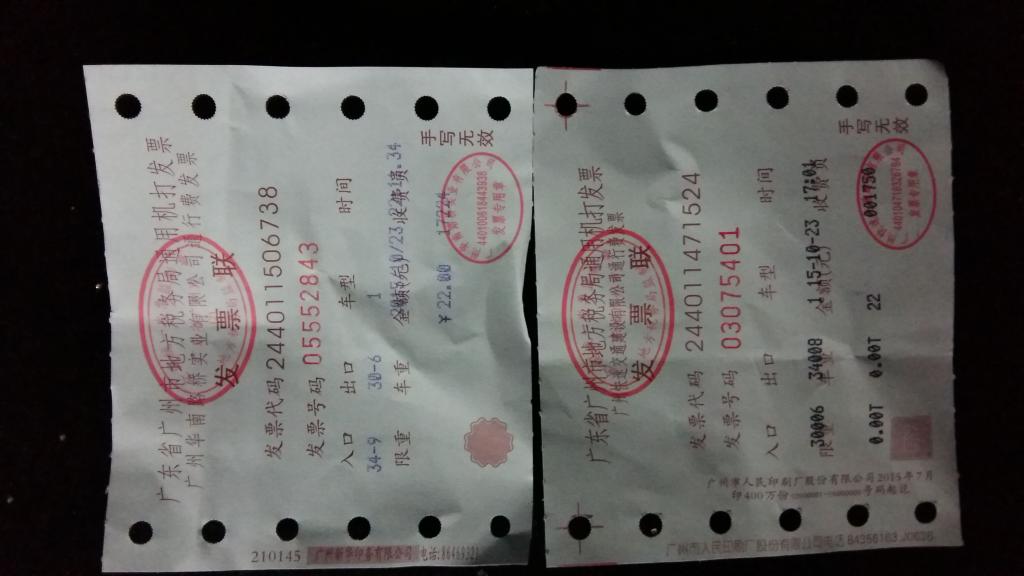 广东省广州市地方税务局通用机打发票
广州华南路桥实业有限公司通行费发票
发票联
发票代码 244011506738
发票号码 05552843
入口 出口 车型 时间
34-9 30-6 1
限重 车重 金额(元) 收费员
￥22.00
440100618443936
发票专用章
手写无效
210145 广州新华印务有限公司 电话:86469321
广东省广州市地方税务局通用机打发票
广州快速交通建设有限公司通行费发票
发票联
发票代码 244011471524
发票号码 03075401
入口 出口 车型 时间
30006 34008 1 15-10-23
限重 车重 金额(元) 收费员
0.00T 0.00T 22 001750
发票专用章
手写无效
广州市人民印刷厂股份有限公司2015年7月
印400万份 号码起讫
广州市人民印刷厂股份有限公司电话 84356163 J0626